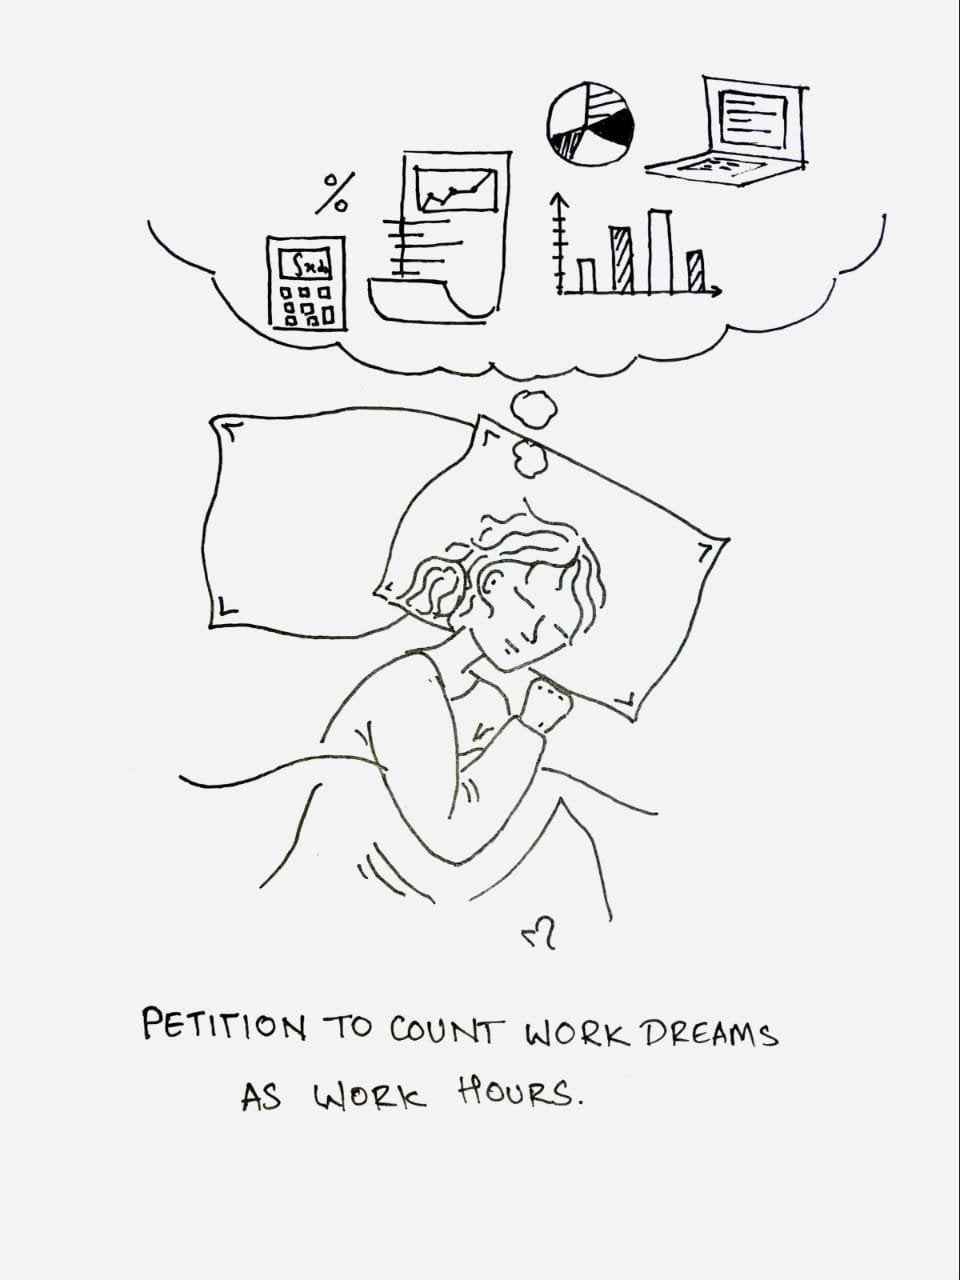 %
∫xdx
PETITION TO COUNT WORK DREAMS
AS WORK HOURS.